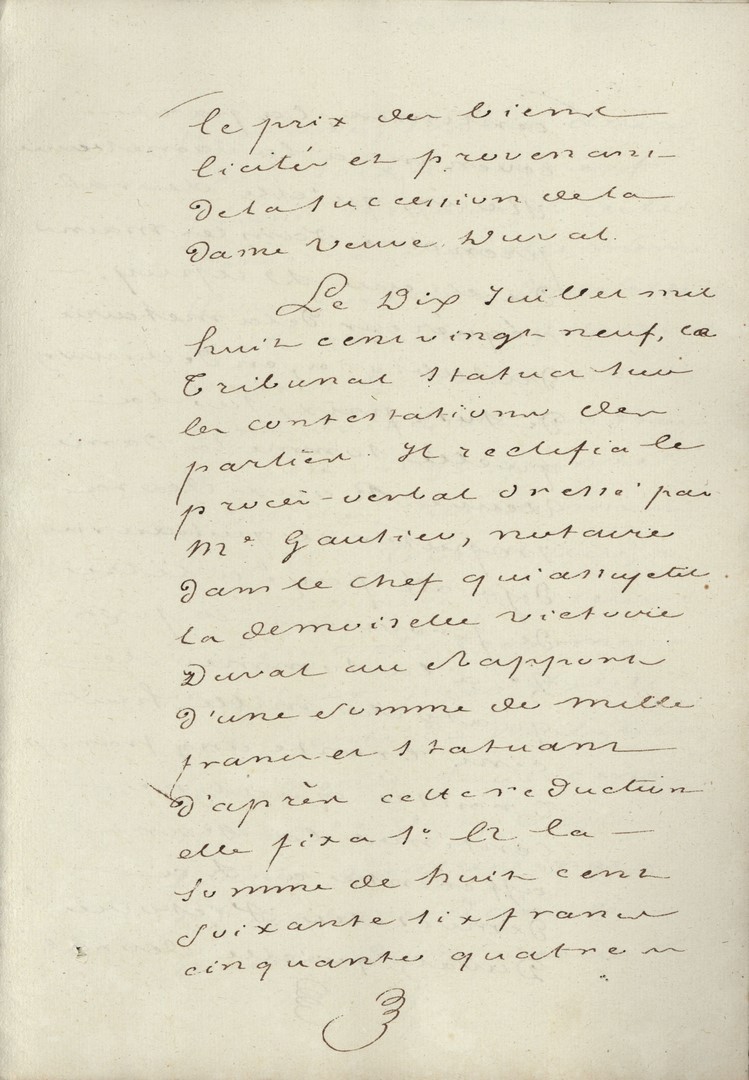 le prix des biens
licités et provenant
de la succession de la
dame veuve Duval.
Le Dix Juillet mil
huit cent vingt neuf, le
Tribunal statua sur
les contestations des
parties. Il rectifia le
procès-verbal dressé par
Me Gautier, notaire
dans le chef qui assujetit
la demoiselle Victoire
Duval au Rapport
d'une somme de mille
francs et statuant
d'après cette reduction
elle fixa 1o à la
somme de huit cent
soixante six francs
cinquante quatre